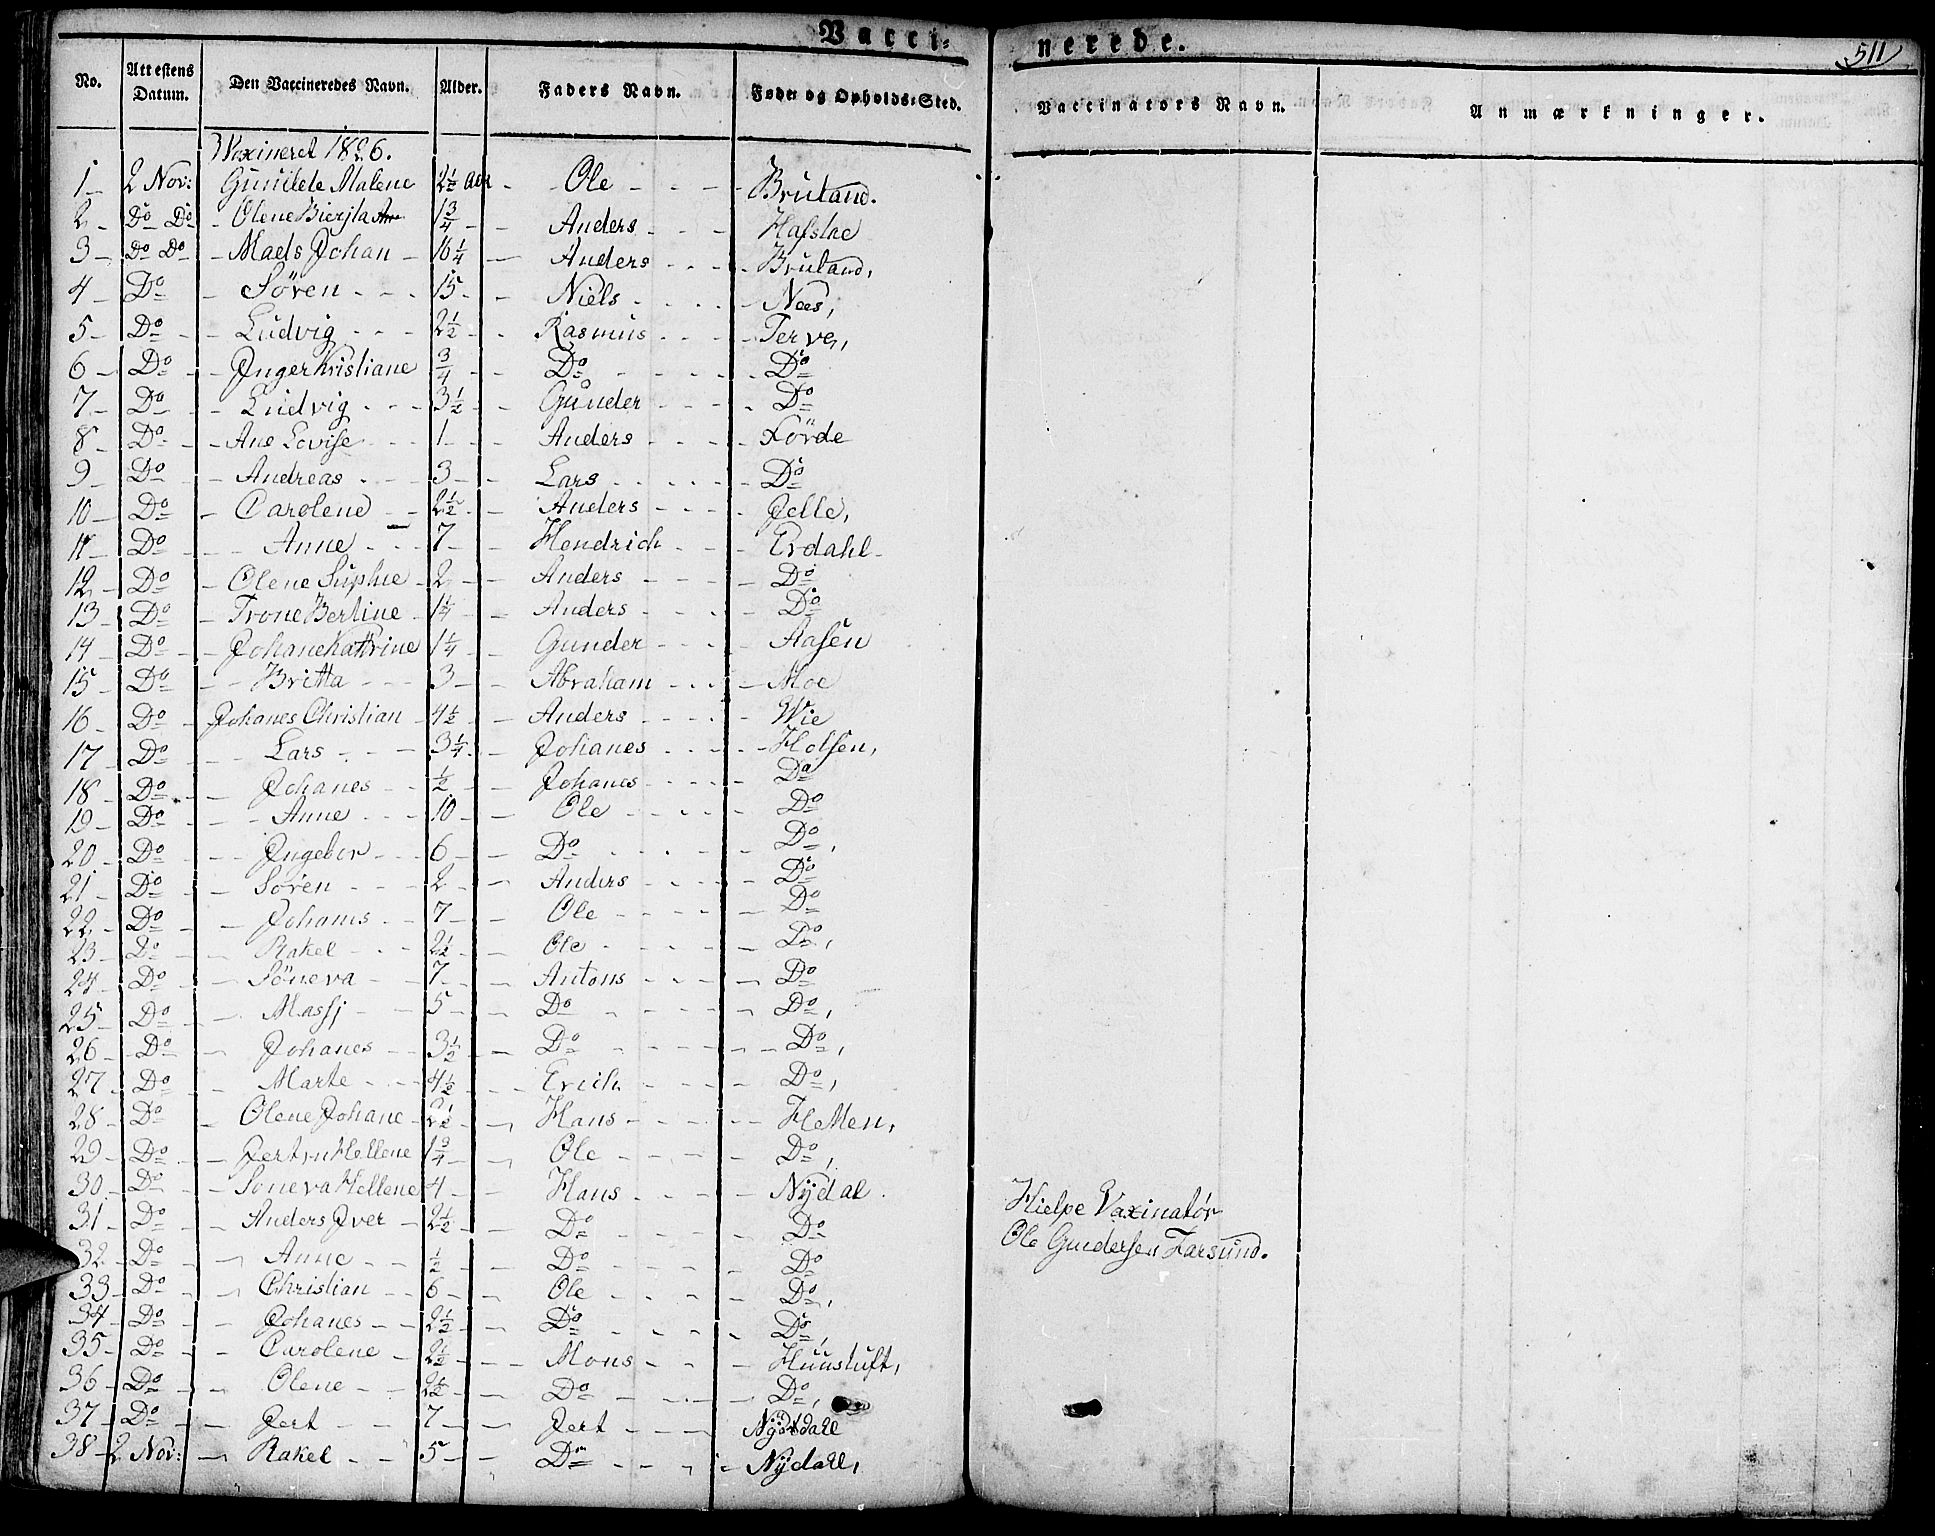 Vacci= nerede.
511
No. Attestens Datum. Den Vaccineredes Navn. Alder. Faders Navn. Føde og Opholds=Sted. Vaccinators Navn. Anmærkninger.
Waxineret 1826.
1 – 2 Nov: Malene 2½ – Ole – – – Bruland.
2 – Do Do – Olene 1¾ – – Anders – – – Hafstae
3 – Do Do – Mads Johan – 16¼ – Anders – – – Bruland,
4 – Do – Sören – – – 15 – – Niels – – – Nees,
5 – Do – – Ludvig – – – 2½ – – Rasmus – – – Terve,
6 – Do – – Inger Kristiane ¾ – – Do – – – Do
7 – Do – – Ludvig – – – 3½ – – Gunder – – – Do
8 – Do – – Ane Lovise – – 1 – – Anders – – – Förde
9 – Do – – Andreas – – – 3 – – Lars – – – Do
10 – Do – Carolene – – 2½ – – Anders – – – Jelle,
11 – Do – – – Anne – – – 7 – – Hendrich – – – Erdahl –
12 – Do – Olene Sophie – 2 – – Anders – – – Do
13 – Do – Trone Bertine – 1¼ – – Anders – – – Do
14 – Do – Johane Kathrine 1¼ – – Gunder – – – Aasen
15 – Do – – Britta – – – 3 – – Abraham – – – Moe
16 – Do – Johanes Christian – 4½ – – Anders – – – Wie
17 – Do – – Lars – – – 3¼ – – Johanes – – – Holsen,
18 – Do – – Johanes – – ½ – – Johanes – – – Do
19 – Do – – Anne – – – 10 – – Ole – – – Do
20 – Do – – Ingebor – – – 6 – – Do – – – Do,
21 – Do – – Sören – – – 2 – – Anders – – – Do
22 – Do – – Johanes – – 7 – – Ole – – – Do
23 – Do – – Rakel – – – 2½ – – Ole – – – Do,
24 – Do – – Söneva – – 7 – – Antons – – – Do
25 – Do – – Massj – – 5 – – Do – – – Do,
26 – Do – – Johanes – – 3½ – – Do – – – Do,
27 – Do – – Marte – – – 4½ – – Erich – – – Do,
28 – Do – Olene Johane – 2½ – – Hans – – – Hetlen,
29 – Do – – Hellene 1¾ – – Ole – – – Do,
30 – Do – – Soneva Hellene 4 – – Hans – – – Nÿdal.
31 – Do – – Anders Iver – 2½ – – Do – – – Do
32 – Do – – Anne – – ½ – – Do – – – Do
33 – Do – – Christian – 6 – – Ole – – – Do,
34 – Do – – Johanes – – 2½ – – Do – – – Do,
35 – Do – – Carolene – 2½ – – Mons – – – Huustuft,
36 – Do – – Olene – – 2½ – – Do – – – Do,
37 – Do – – Jert – – 7 – – Jert – – –
38 – 2 Nov: – Rakel – – 5 – – Do – – – Nÿdall,
Hielpe Vaxinatör
Ole Gundersen Farsund.